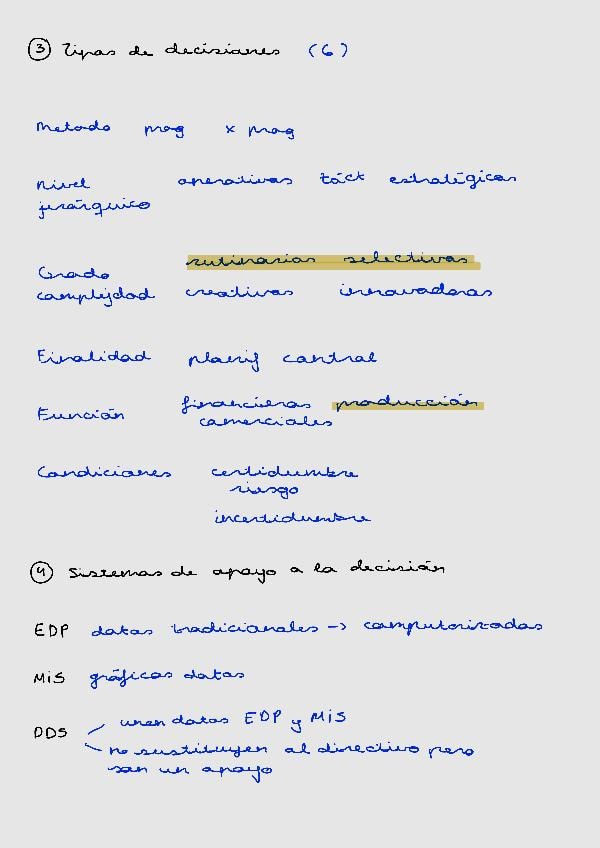 ③ Tipos de decisiones (6)
Metodo prog x prog
Nivel operativas táct estratégicas
jerárquico
rutinarias selectivas
Grado
complejdad creativas innovadoras
Finalidad planif control
Función financieras producción
comerciales
Condiciones certidumbre
riesgo
incertidumbre
④ Sistemas de apoyo a la decisión
EDP datos tradicionales -> computorizados
MiS gráficos datos
DDS unen datos EDP y MiS
no sustituyen al directivo pero
son un apoyo